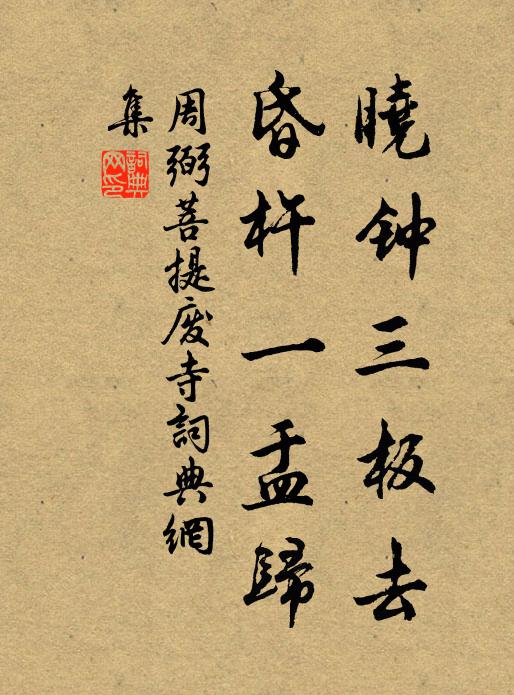 曉钟三板去
昏杵一盂歸
周弼菩提廢寺詞典網
集
詞典
网印